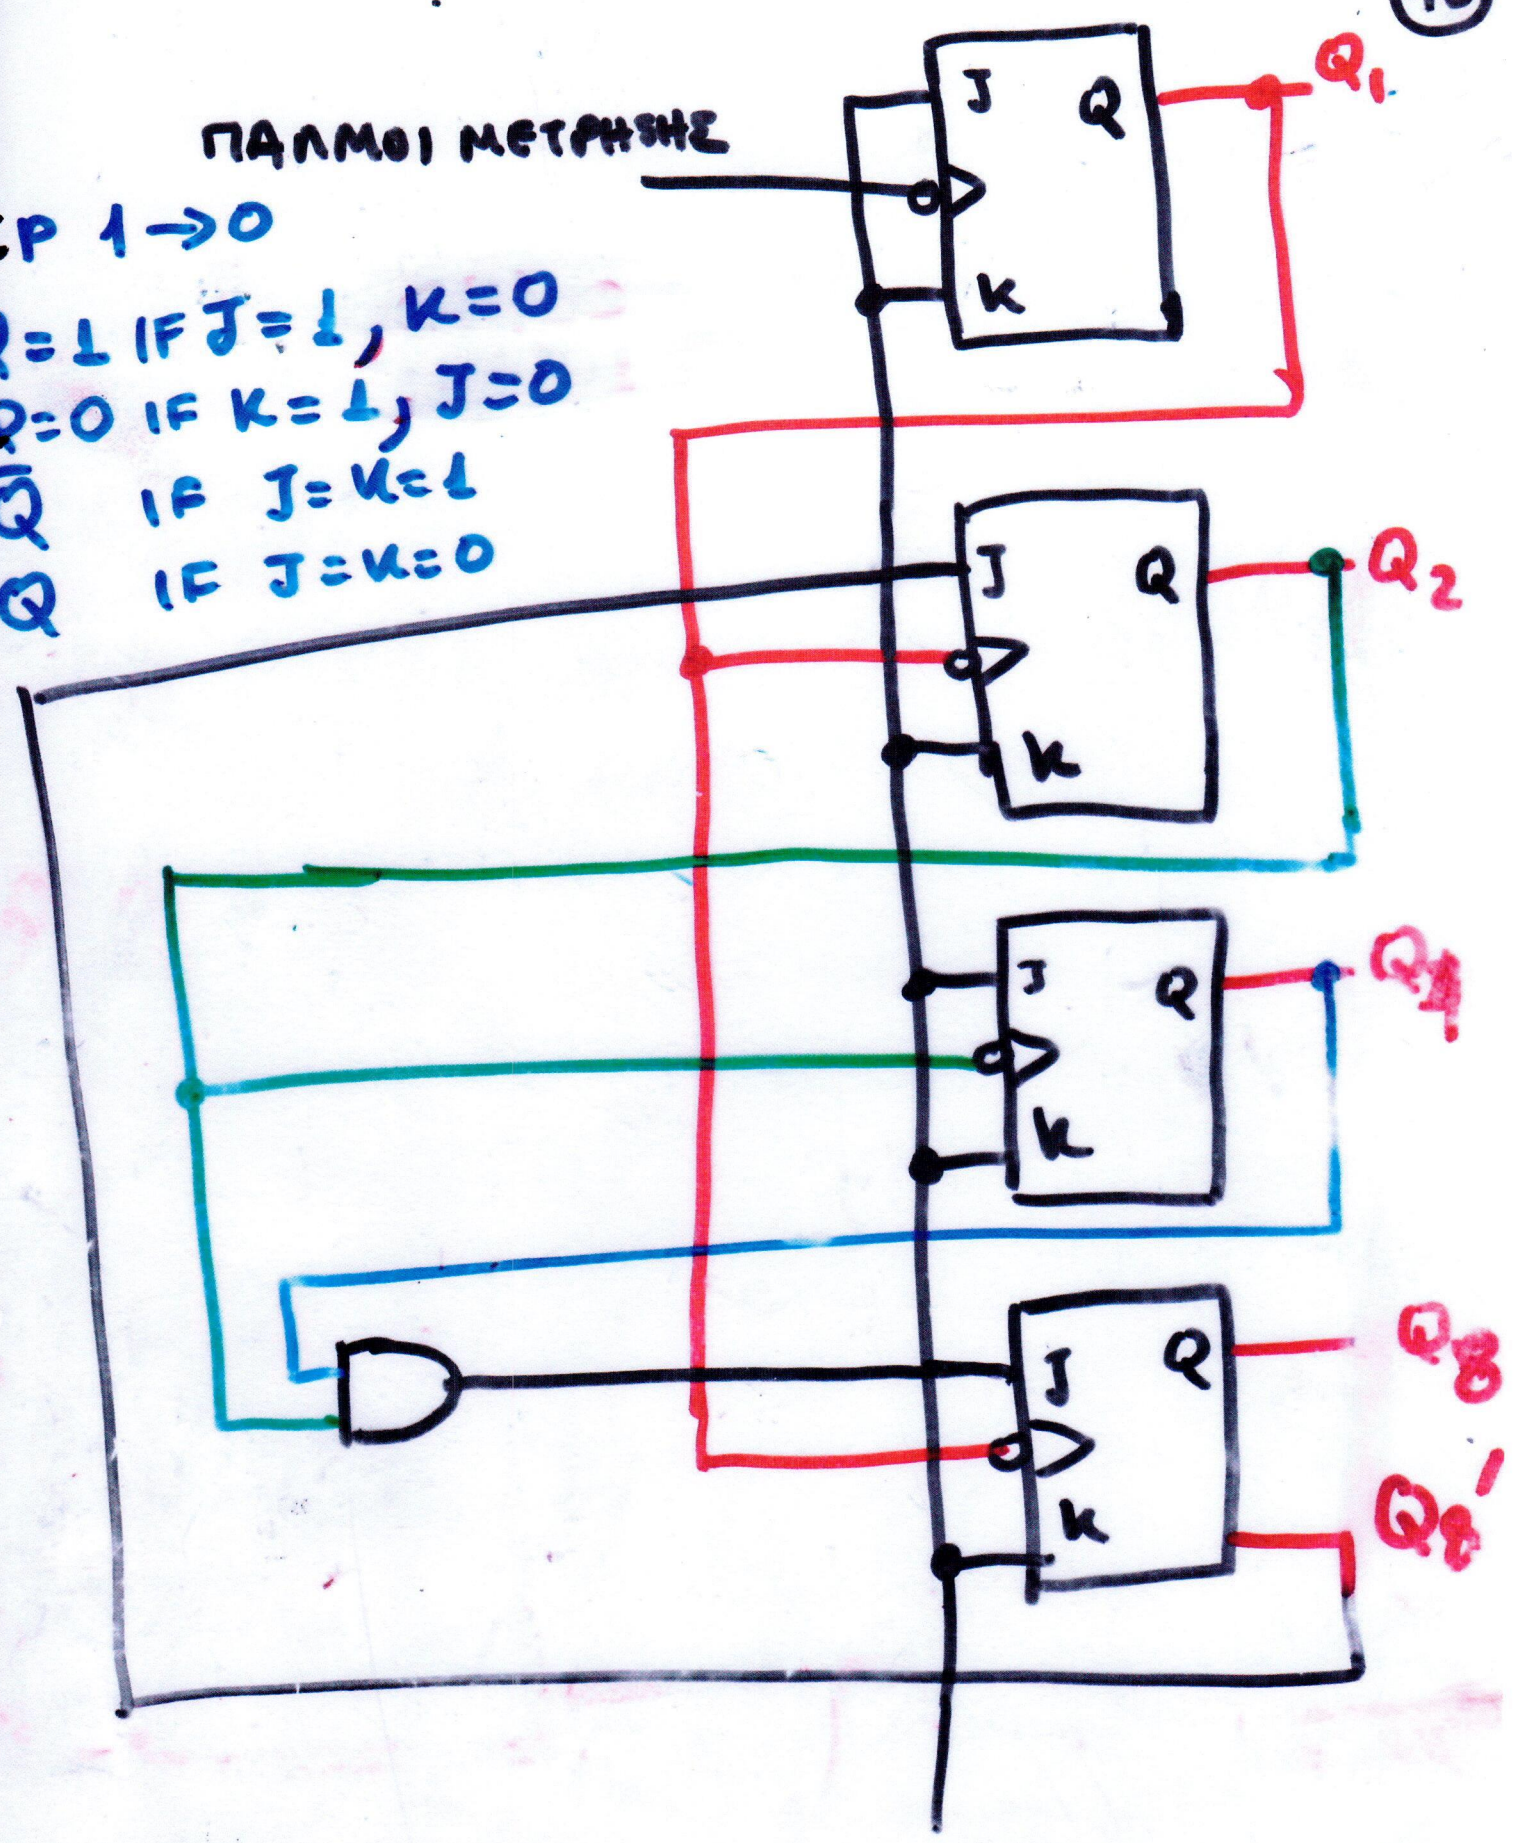 ΠΑΛΜΟΙ ΜΕΤΡΗΣΗΣ
CP 1→0
Q=1 IF J=1, K=0
Q=0 IF K=1, J=0
Q̅ IF J=K=1
Q IF J=K=0
J Q Q1
K
J Q Q2
K
J Q Q4
K
J Q Q8
K Q8'